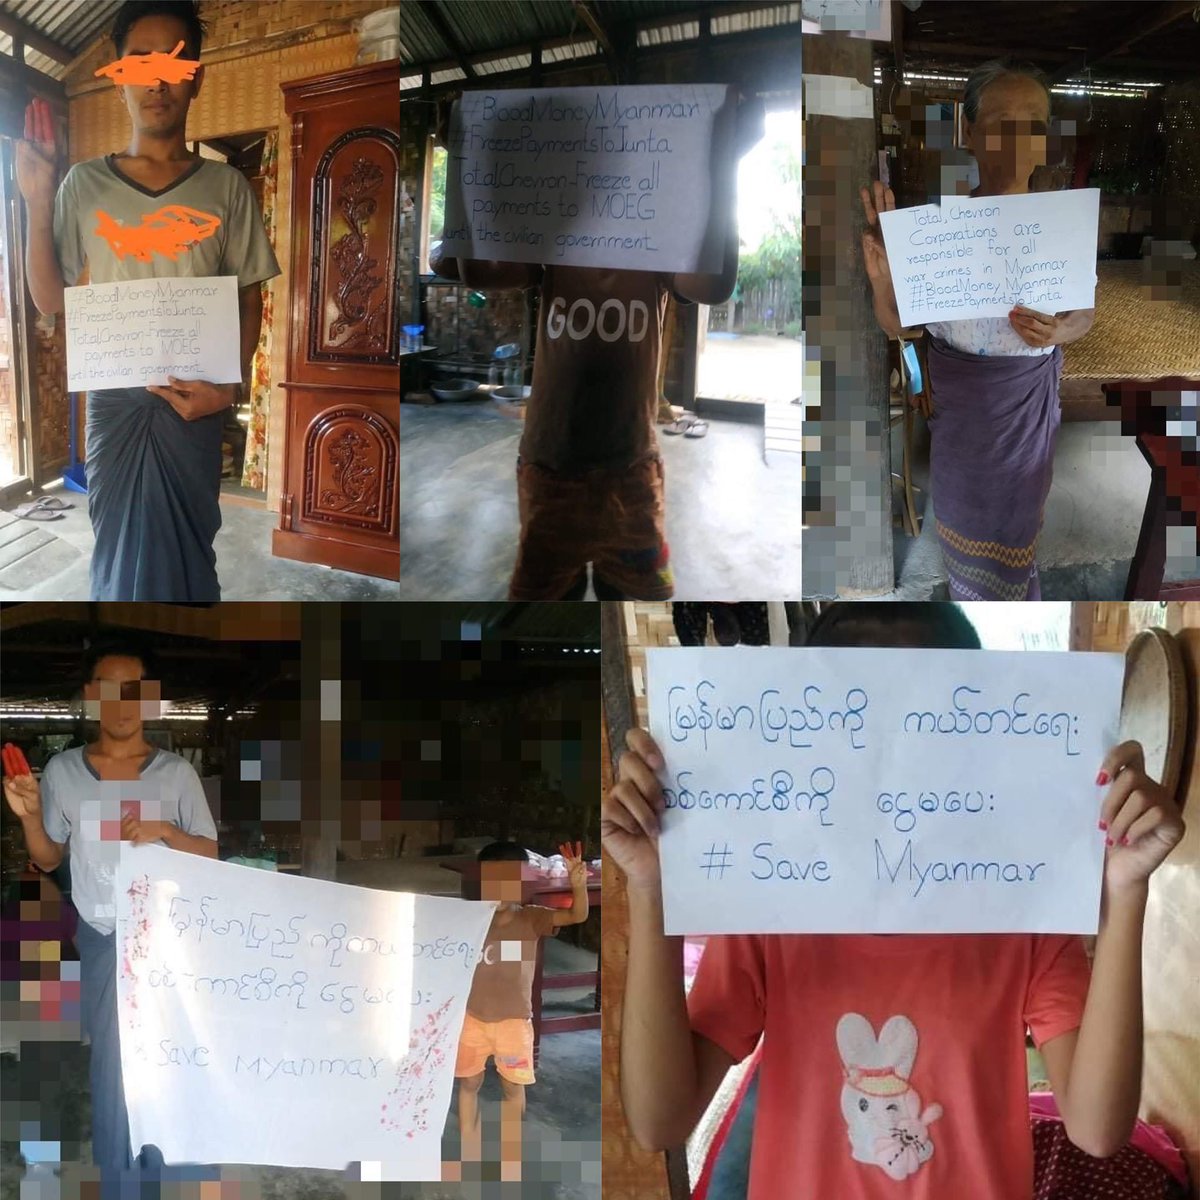 #BloodMoneyMyanmar
#FreezePaymentsToJunta
Total,Chevron-Freeze all
payments to MOEG
until the civilian government
#BloodMoneyMyanmar
#FreezePaymentsToJunta
Total,Chevron-Freeze all
payments to MOEG
until the civilian government
GOOD
Total, Chevron
Corporations are
responsible for all
war crimes in Myanmar
#BloodMoney Myanmar
#FreezePaymentsToJunta
မြန်မာပြည်ကိုကယ်တင်ရေး
စစ်ကောင်စီကို ငွေမပေး
# Save Myanmar
မြန်မာပြည်ကို ကယ်တင်ရေး
စစ်ကောင်စီကို ငွေမပေး
# Save Myanmar